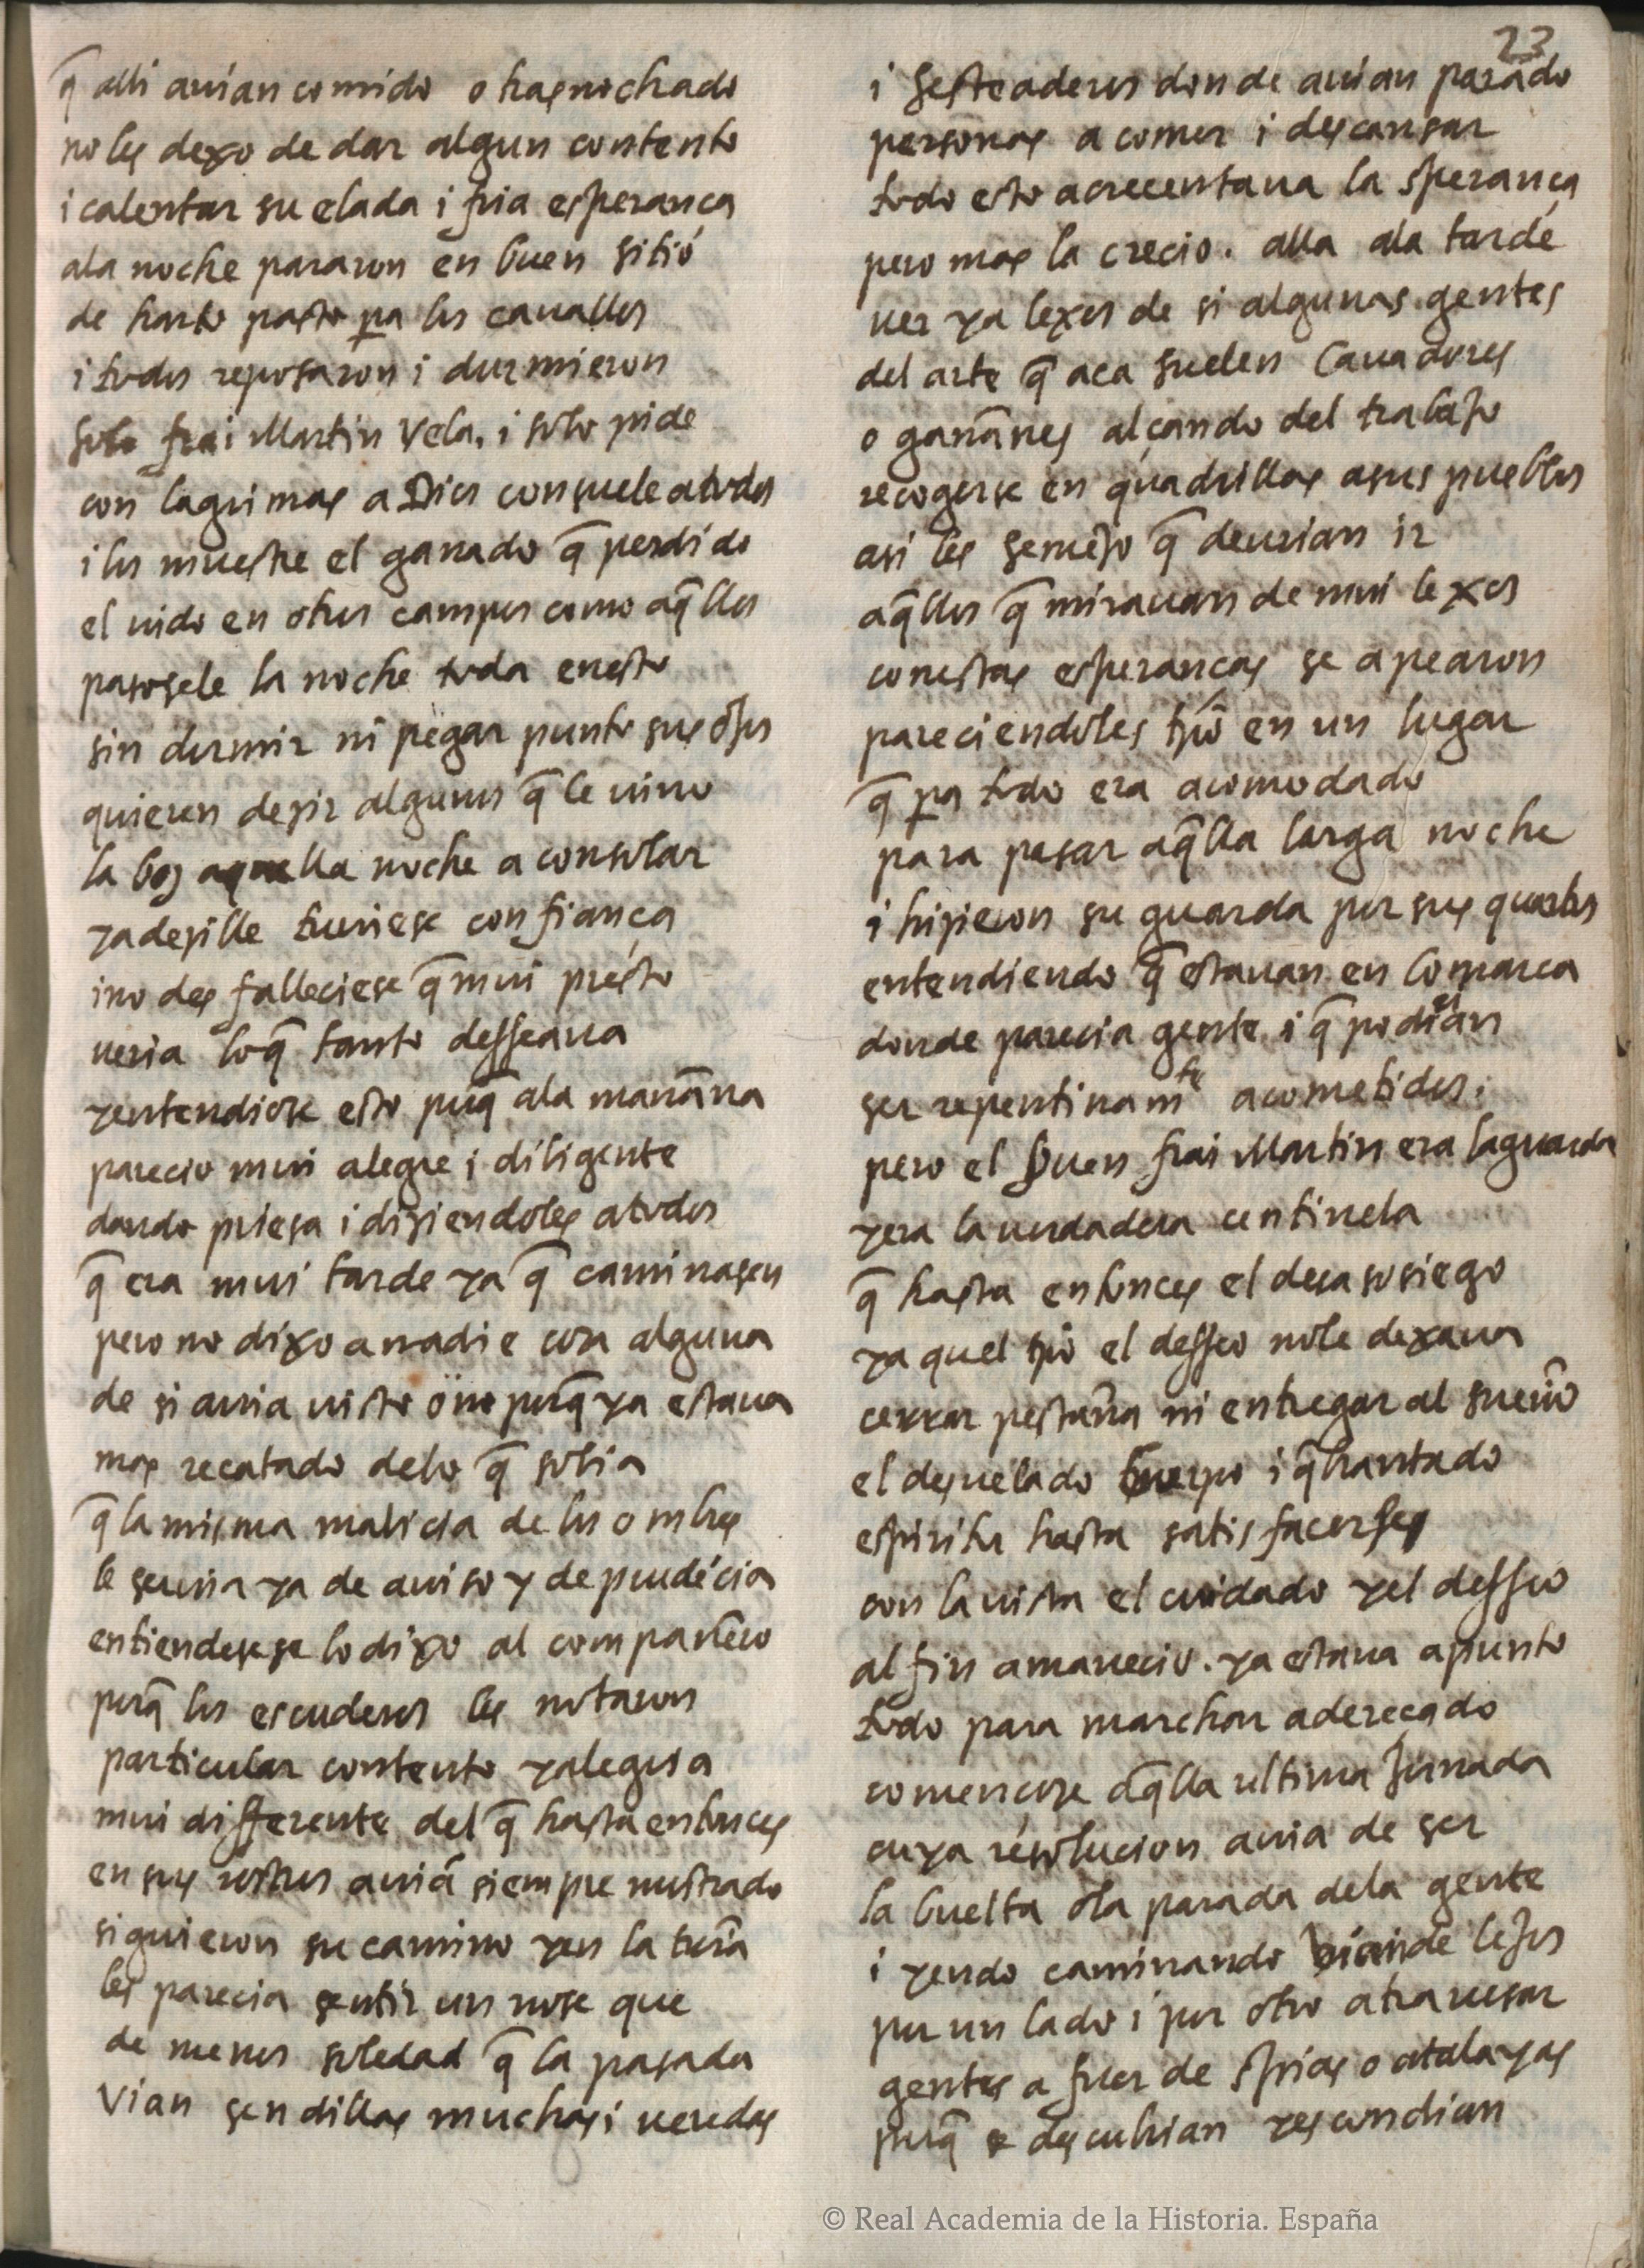 q̃ alli auian comido o trasnochado
no les dexo de dar algun contento
i calentar su elada i fria esperança
ala noche pararon en buen sitio
de harto pasto pa los cauallos
i todos reposaron i durmieron
solo frai Martin Vela, i solo pide
con lagrimas a Dios consuele a todos
i los muestre el ganado q̃ perdido
el uido en otros campos como aq̃llos
pasosele la noche toda enesto
sin dormir ni pegar punto sus ojos
quieren dezir algunos q̃ le uino
la boz aquella noche a consolar
y a dezille tuuiese confiança
i no desfalleciese q̃ mui presto
ueria loq̃ tanto desseaua
y entendiose esto porq̃ ala manãna
parecio mui alegre i diligente
dando priesa i diziendoles a todos
q̃ era mui tarde ya q̃ caminasen
pero no dixo a nadie cosa alguna
de si auia uisto o no porq̃ ya estaua
mas recatado delo q̃ solia
q̃ la misma malicia de los ombres
le seruia ya de auiso y de prudẽcia
entiendese se lo dixo al companẽro
porq̃ los escuderos les notaron
particular contento y alegria
mui differente del q̃ hasta entonces
en sus rostros auiã siempre mostrado
siguieron su camino y en la tierra
les parecia sentir un nose que
de menos soledad q̃ la pasada
Vian sendillas muchas i ueredas
23
i sesteaderos donde auian parado
personas a comer i descansar
todo esto acrecentaua la sperança
pero mas la crecio. alla ala tarde
uer ya lexos de si algunas gentes
del arte q̃ aca suelen Cauadores
o ganãnes alçando del trabajo
recogerse en quadrillas a sus pueblos
asi les semejo q̃ deurian ir
aq̃llos q̃ mirauan de mui lexos
con estas esperancas se apearon
pareciendoles tpõ en un lugar
q̃ pa todo era acomodado
para pasar aq̃lla larga noche
i hizieron su guarda por sus quartos
entendiendo q̃ estauan en Comarca
donde parecia gente i q̃ podian
ser repentinamte acometidos.
pero el buen frai Martin era la guarda
y era la uerdadera centinela
q̃ hasta entonces el desasosiego
y aquel tpõ el desseo nole dexaua
cerrar pestaña ni entregar al sueño
el desuelado cuerpo i q̃brantado
espiritu hasta satisfacerse
con la uista el cuidado y el desseo
al fin amanecio. ya estaua apunto
todo para marchar aderecado
comencose aq̃lla ultima jornada
cuya resolucion auia de ser
la buelta o la parada dela gente
i yendo caminando uian de lejos
por un lado i por otro atrauesar
gentes a fuer de spias o atalayas
porq̃ se descubrian y escondian
© Real Academia de la Historia. España